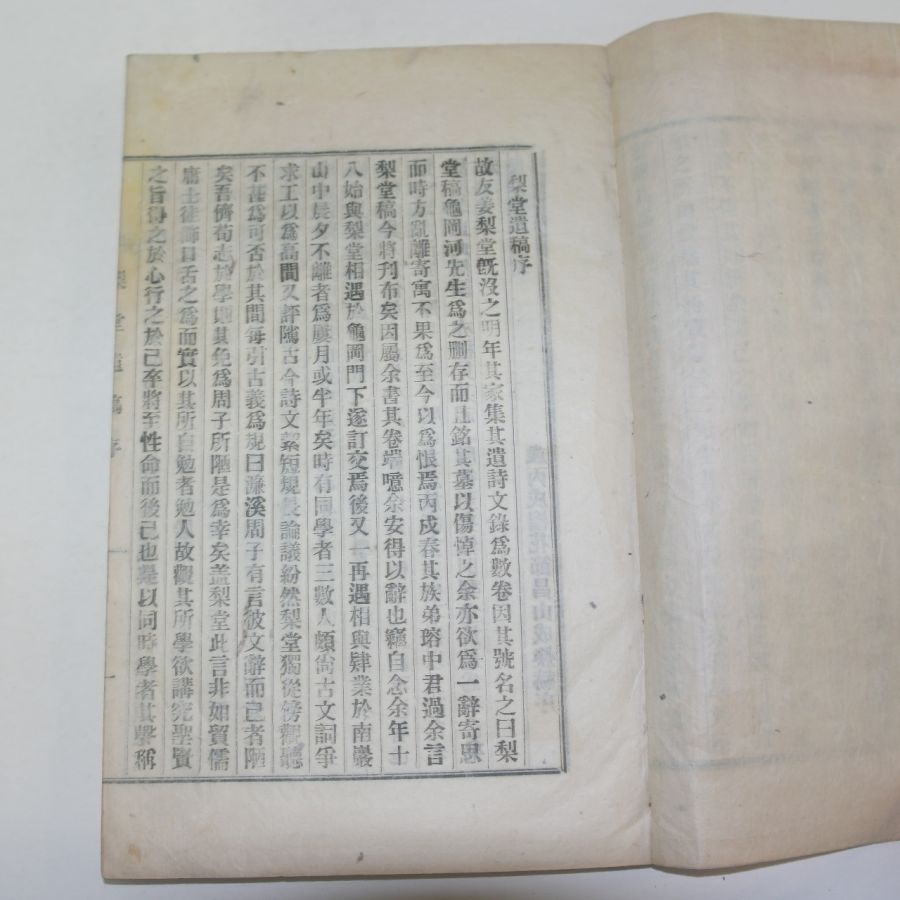 梨堂遺稿序
故友姜梨堂旣沒之明年其家集其遺詩文錄爲數卷因其號名之曰梨
堂稿龜岡河先生爲之刪存而且銘其墓以傷悼之余亦欲爲一辭寄思
而時方亂離寄寓不果爲至今以爲恨焉丙戌春其族弟瑢中君過余言
梨堂稿今將刋布矣因屬余書其卷端噫余安得以辭也竊自念余年十
八始與梨堂相遇於龜岡門下遂訂交焉後又一再遇相與肄業於南巖
山中晨夕不離者爲屢月或半年矣時有同學者三數人頗尙古文詞爭
求工以爲高間又評隲古今詩文絜短規長論議紛然梨堂獨從傍觀聽
不甚爲可否於其間每引古義爲規曰濂溪周子有言彼文辭而已者陋
矣吾儕苟志於學則其免爲周子所陋是爲幸矣盖梨堂此言非如貿儒
庸士徒飾口舌之爲而實以其所自勉者勉人故觀其所學欲講究聖賢
之旨得之於心行之於己卒將至性命而後已也是以同時學者其擧稱
梨堂遺稿序 一